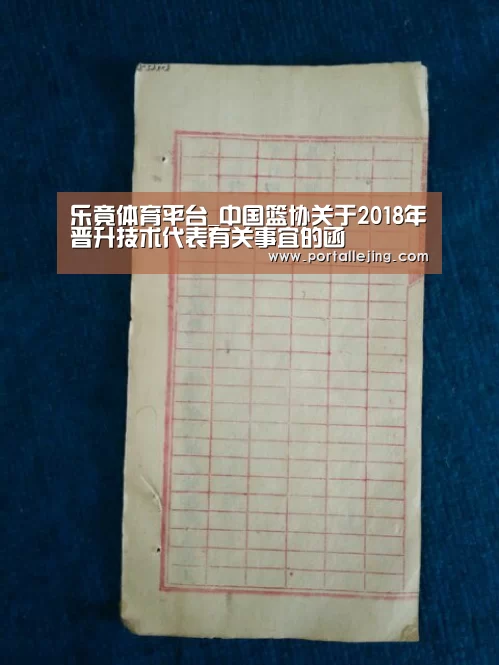 乐竟体育平台_中国篮协关于2018年
晋升技术代表有关事宜的函
www.portallejing.com